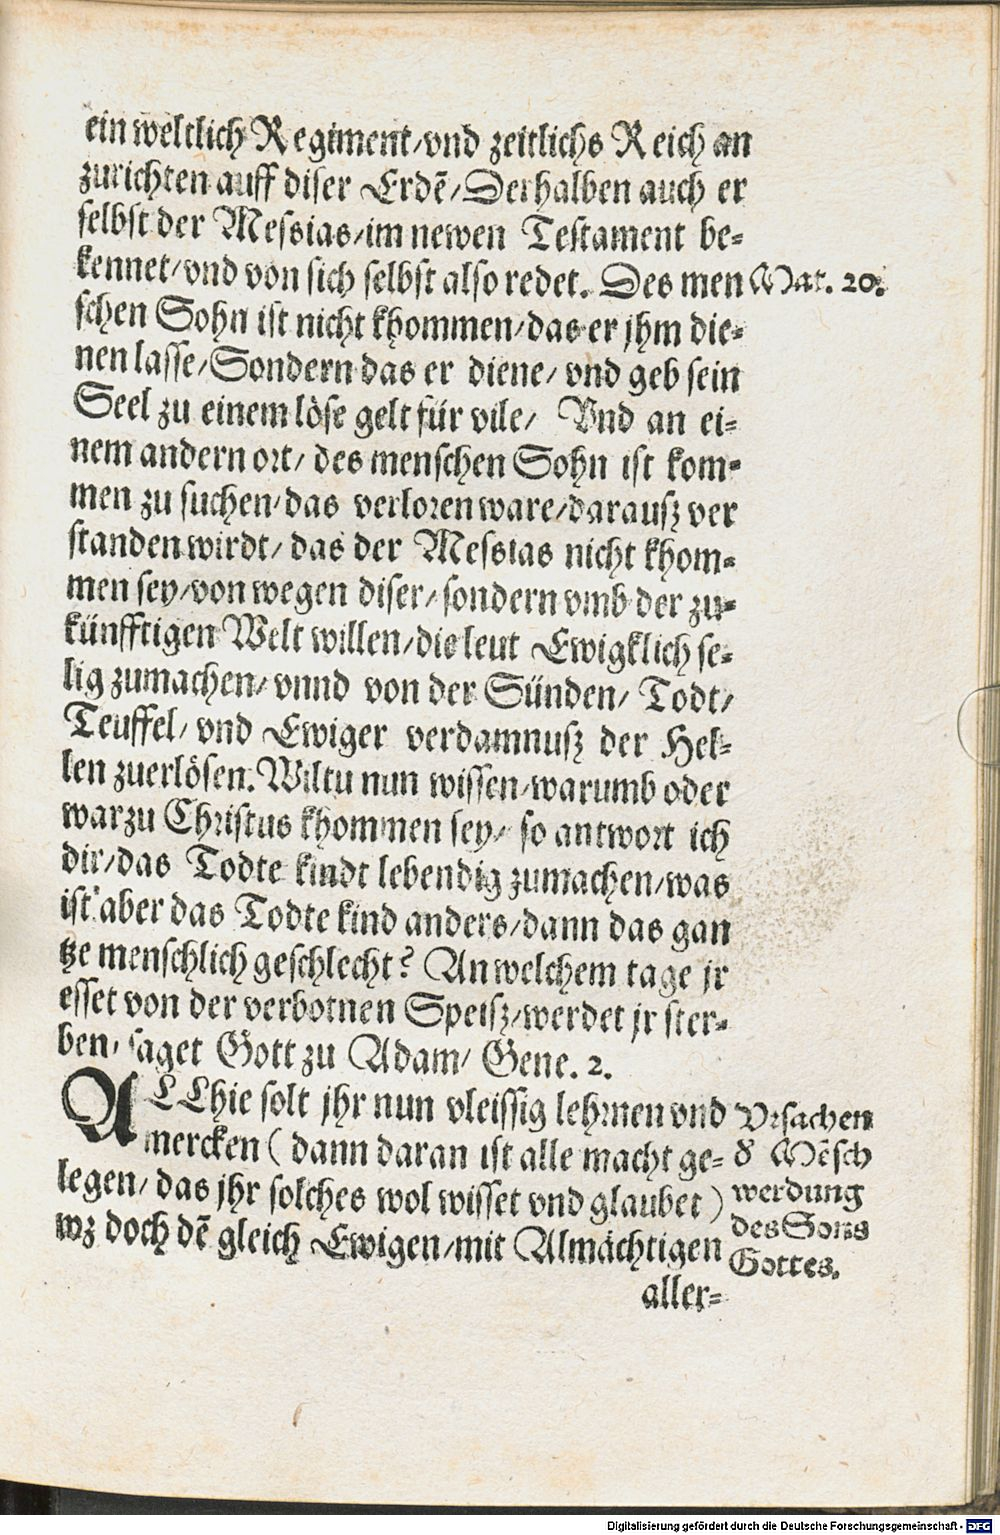 ein weltlich Regiment/vnd zeitlichs Reich an
zurichten auff diser Erdẽ/Derhalben auch er
selbst der Messias/im newen Testament be-
kennet/vnd von sich selbst also redet. Des men
Mat. 20.
schen Sohn ist nicht khommen/das er jhm die-
nen lasse/Sondern das er diene/ vnd geb sein
Seel zu einem löse gelt für vile/ Vnd an ei-
nem andern ort/ des menschen Sohn ist kom-
men zu suchen/das verloren ware/daraufz ver
standen wirdt/ das der Messias nicht khom-
men sey/von wegen diser/ sondern vmb der zu-
künfftigen Welt willen/die leut Ewigklich se-
lig zumachen/ vnnd von der Sünden/ Todt/
Teuffel/ vnd Ewiger verdamnusz der Hel-
len zuerlösen. Wiltu nun wissen/warumb oder
warzu Christus khommen sey/ so antwort ich
dir/das Todte kindt lebendig zumachen/was
ist aber das Todte kind anders/dann das gan
tze menschlich geschlecht? An welchem tage jr
esset von der verbotnen Speisz/werdet jr ster-
ben/ saget Gott zu Adam/ Gene. 2.
ALLhie solt jhr nun vleissig lehrnen vnd
mercken ( dann daran ist alle macht ge-
legen/ das jhr solches wol wisset vnd glaubet )
wz doch dẽ gleich Ewigen/mit Almächtigen
aller-
Vrsachen
d' Mẽsch
werdung
des Sons
Gottes.
Digitalisierung gefördert durch die Deutsche Forschungsgemeinschaft - DFG